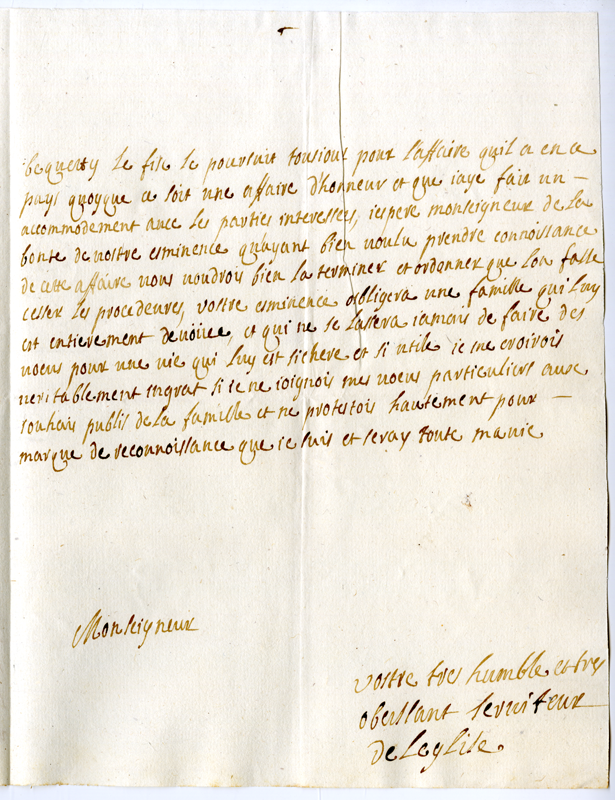 bequetty le fils le poursuit tousiours pour l'affaire quil a en ce
pays quoyque ce soit une affaire d'honneur et que iaye fait un –
accommodement avec les parties interessees, iespere monseigneur de la
bonte de vostre esminence quayant bien voulu prendre connoissance
de cette affaire vous voudrois bien la terminer et ordonner que lon fasse
cesser les procedeures, vostre esminence obligera une famille qui luy
est entierement devoüee, et qui ne se lassera iamais de faire des
voeus pour une vie qui luy est si chere et si utile ie me croirois
veritablement ingrat si ie ne ioignois mes voeus particuliers aux
souhais publis de la famille et ne protestois hautement pour –
marque de reconnoissance que ie suis et seray toute ma vie
Monseigneur
vostre tres humble et tres
obeissant serviteur
De Leglise.